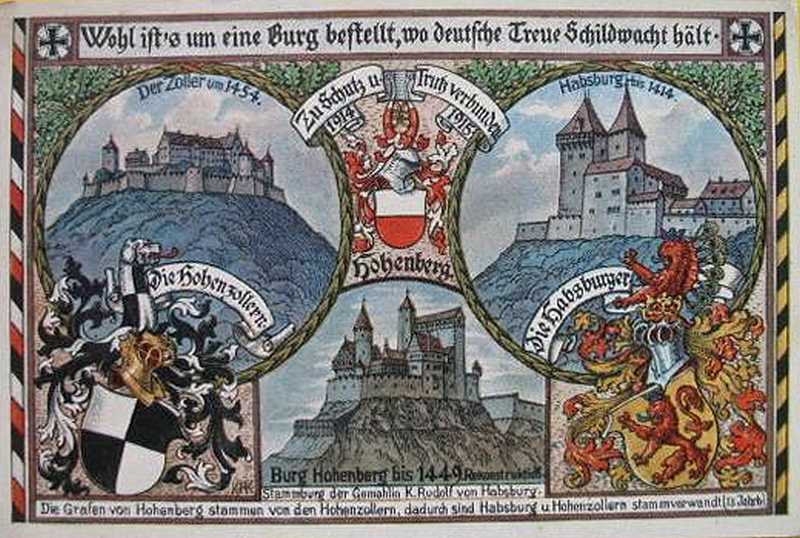 Wohl ist's um eine Burg bestellt, wo deutsche Treue Schildwacht hält.
Der Zoller um 1454.
Zu Schutz u. Trutz verbunden
1914 1915
Habsburg bis 1414.
Hohenberg.
Die Hohenzollern.
Die Habsburger
Burg Hohenberg bis 1449. Rekonstruktion.
Stammburg der Gemahlin K. Rudolf von Habsburg.
Die Grafen von Hohenberg stammen von den Hohenzollern, dadurch sind Habsburg u. Hohenzollern stammverwandt (13. Jahrh.)